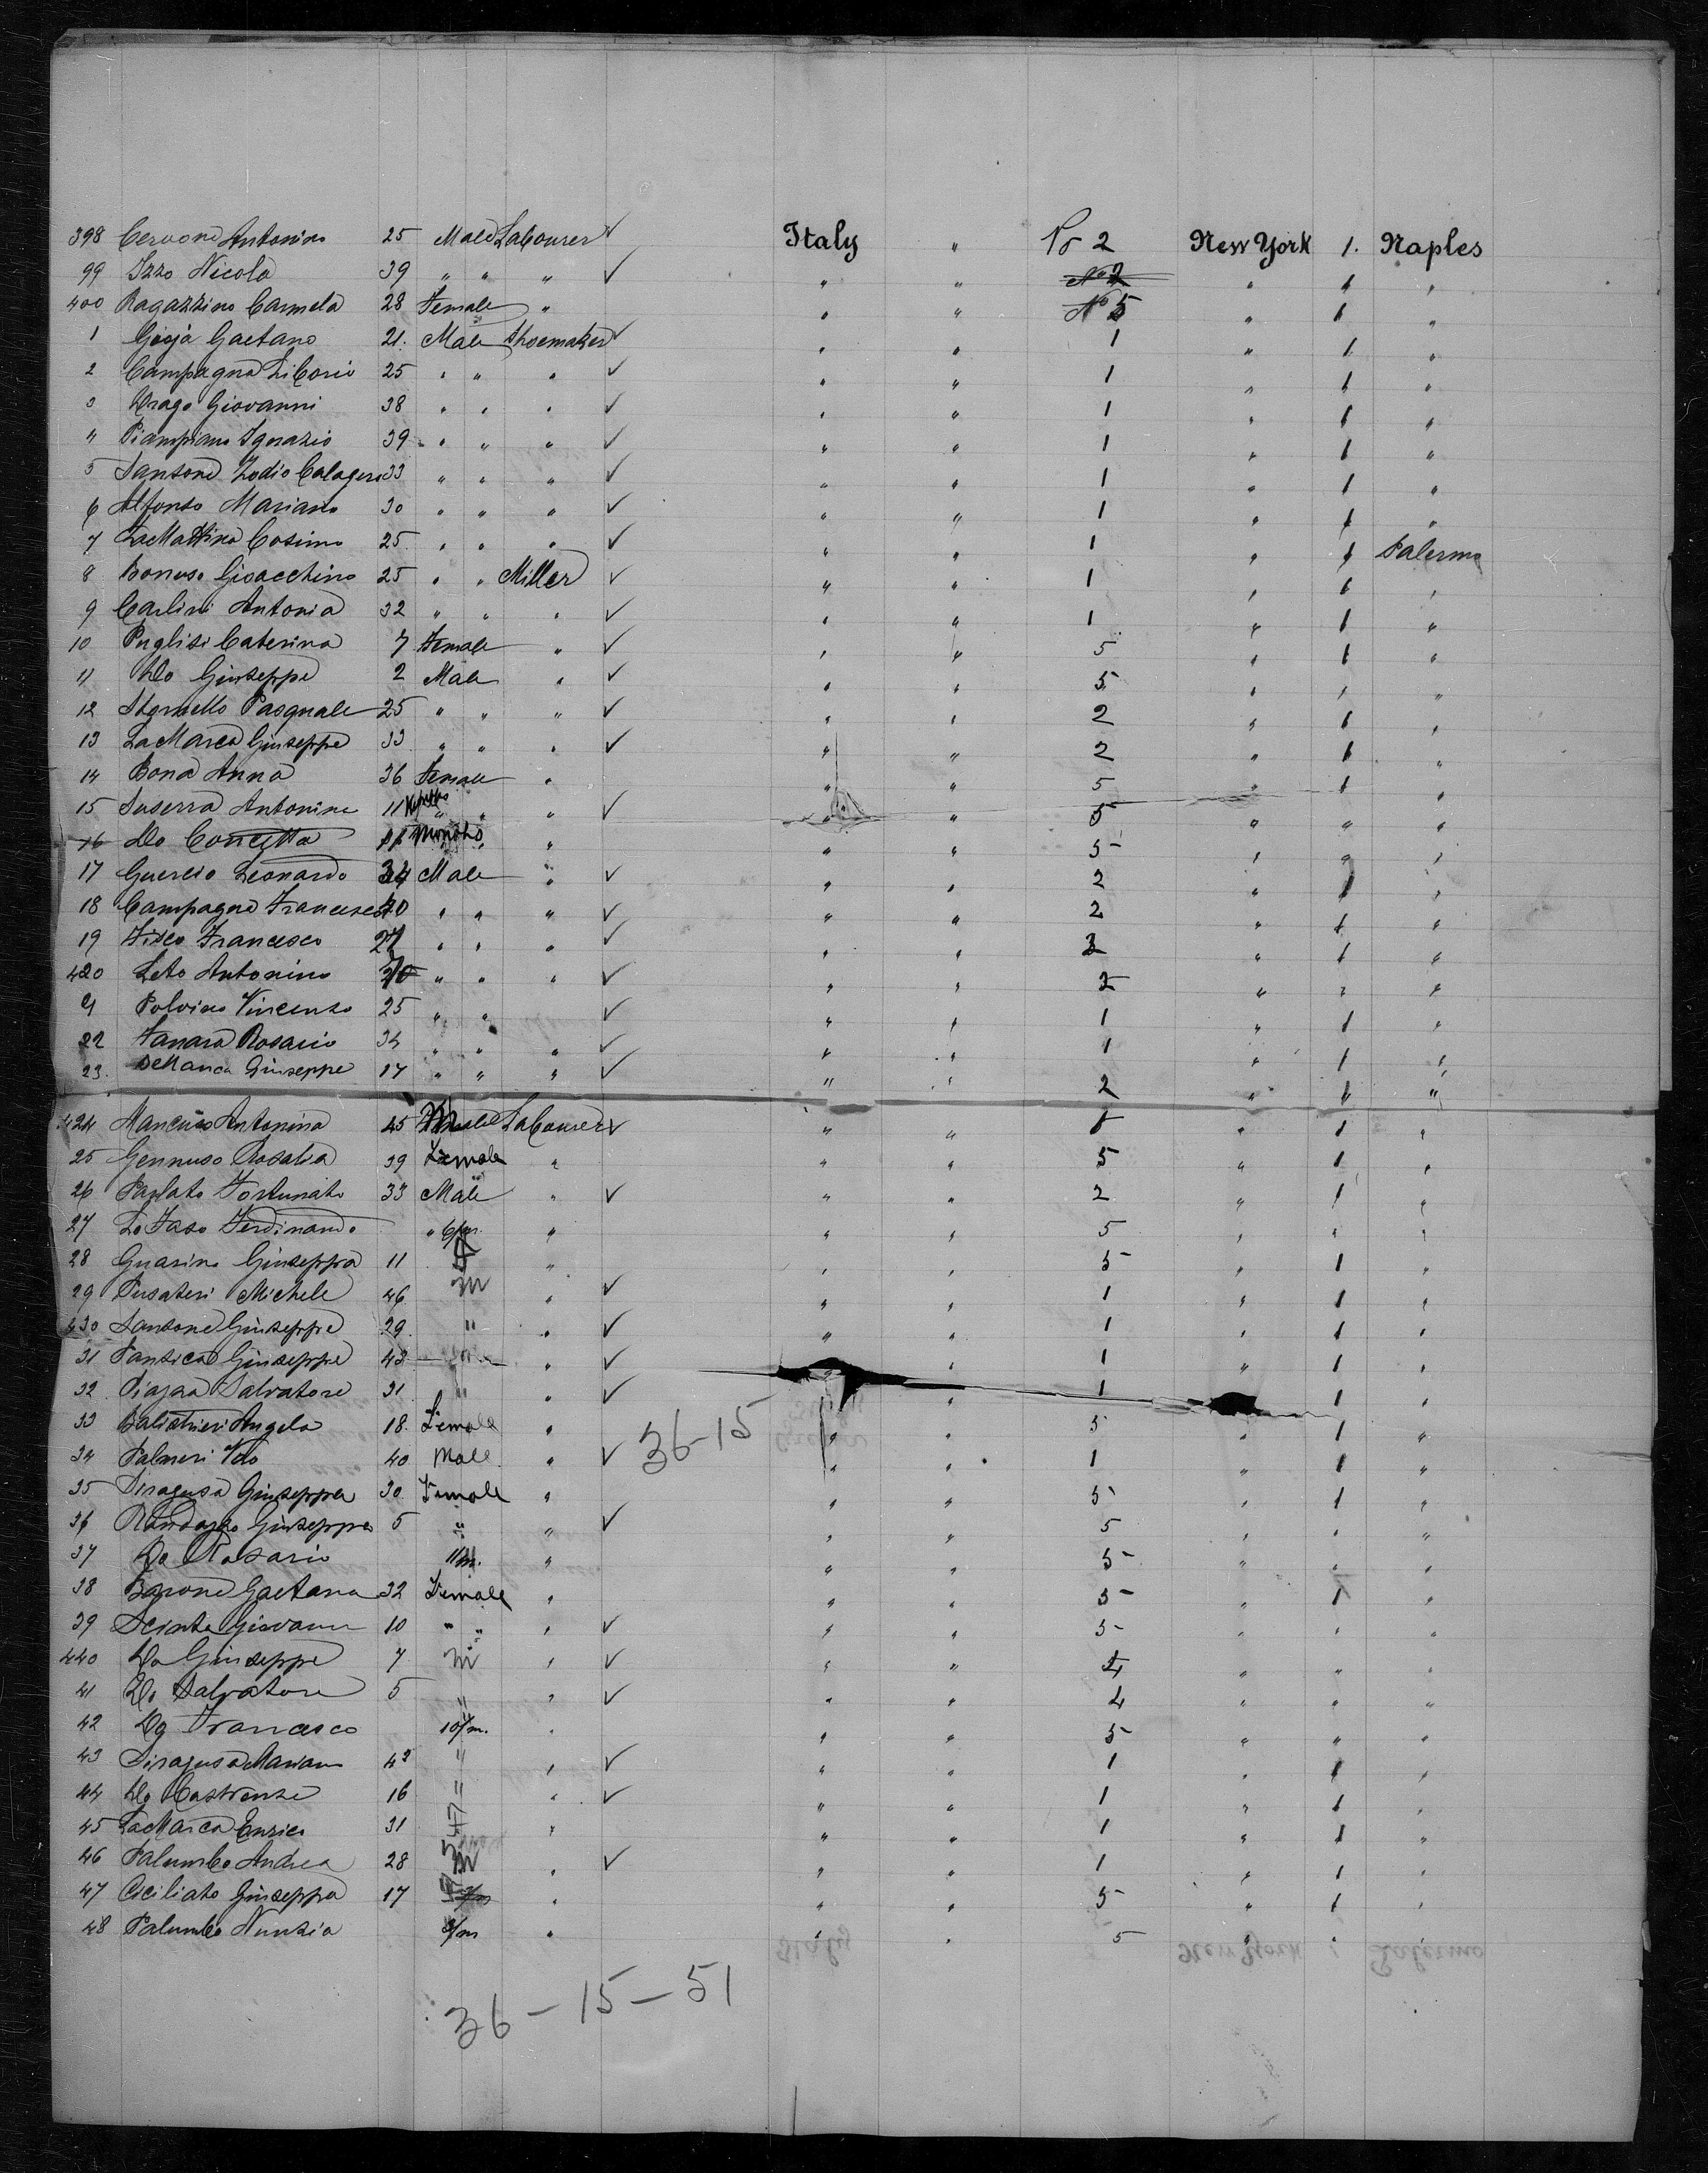 398 Cervone Antonino 25 Male Labourer ✓ Italy " No 2 New York 1. Naples
99 Izzo Nicola 39 " " " ✓ " " No 2 " 1 "
400 Ragazzino Carmela 28 Female " " " No 5 " 1 "
1 Gioja Gaetano 21. Male Shoemaker ✓ " " 1 " 1 "
2 Campagna Liborio 25 " " " ✓ " " 1 " 1 "
3 Drago Giovanni 38 " " " ✓ " " 1 " 1 "
4 Piampiano Ignazio 39 " " " ✓ " " 1 " 1 "
5 Sansone Zodio Calogero 33 " " " ✓ " " 1 " 1 "
6 Alfonso Mariano 30 " " " ✓ " " 1 " 1 "
7 La Mattina Cosimo 25 " " " ✓ " " 1 " 1 Palermo
8 Bonuso Gioacchino 25 " " Miller ✓ " " 1 " 1 "
9 Carlini Antonia 32 " " " ✓ " " 1 " 1 "
10 Puglisi Caterina 7 Female " ✓ " " 5 " 1 "
11 Do Giuseppe 2 Male " ✓ " " 5 " 1 "
12 Pasquale 25 " " " ✓ " " 2 " 1 "
13 La Marca Giuseppe 33 " " " ✓ " " 2 " 1 "
14 Bona Anna 36 Female " " " 5 " 1 "
15 Antonino 11 " " ✓ " " 5 " " "
16 Do Concetta 11 Months " " " 5 " " "
17 Guercio Leonardo 34 Male " ✓ " " 2 " 1 "
18 Campagna Francesco " " " ✓ " " 2 " 1 "
19 Fisco Francesco " " " ✓ " " 2 " 1 "
420 Leto Antonino " " " ✓ " " 2 " "
21 Polvino Vincenzo 25 " " ✓ " " 1 " 1 "
22 Fanara Rosario 34 " " " ✓ " " 1 " 1 "
23 Giuseppe 17 " " " ✓ " " 2 " 1 "
424 Mancuso Antonina 45 Male Labourer ✓ " " " 1 "
25 Gennuso Rosalia 39 Female " " " 5 " 1 "
26 Parlato Fortunato 33 Male " ✓ " " 2 " 1 "
27 Lo Faso Ferdinando " 6/m. " " " 5 " " "
28 Guarino Giuseppa 11 " " " 5 " 1 "
29 Pusateri Michele 46 M " ✓ " " 1 " 1 "
430 Sansone Giuseppe 29 " " ✓ " " 1 " 1 "
31 Giuseppe 43 " " ✓ " " 1 " 1 "
32 Piazza Salvatore 31 " " ✓ " " 1 1 "
33 Balistrieri Angela 18 Female " " " 5 " 1 "
36-15
34 Palmeri Vito 40 Male " ✓ " " 1 " 1 "
35 Siragusa Giuseppa 30 Female " " " 5 " 1 "
36 Randazzo Giuseppa 5 " " ✓ " " 5 " " "
37 Do Rosario 11/m. " " " 5 " " "
38 Barone Gaetana 32 Female " " " 5 " 1 "
39 Scinta Giovanna 10 " " " ✓ " " 5 " " "
440 Do Giuseppe 7 M " ✓ " " 4 " " "
41 Do Salvatore 5 " " ✓ " " 4 " " "
42 Do Francesco 10/m. " " " 5 " " "
43 Siragusa Mariano 42 " " ✓ " " 1 " 1 "
44 Do Castrenze 16 " " ✓ " " 1 " 1 "
45 La Marca Enrico 31 " " " 1 " 1 "
46 Palumbo Andrea 28 M " ✓ " " 1 " 1 "
47 Ciciliato Giuseppa 17 " " " 5 " 1 "
48 Palumbo Nunzia 3/m " " " 5 " " "
36 - 15 - 51